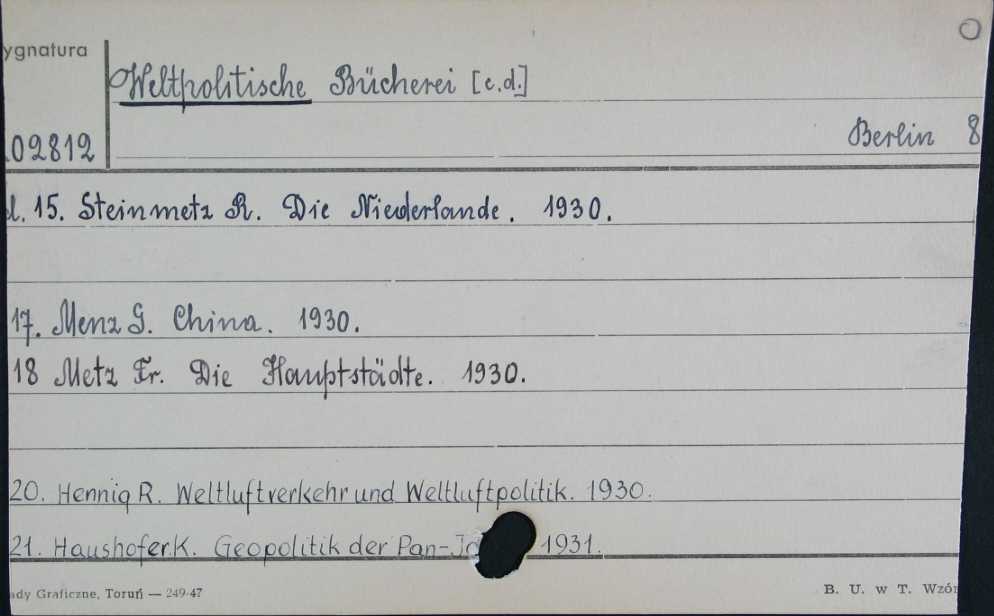 ygnatura
Weltpolitische Bücherei [c.d.]
02812
Berlin 8
15. Steinmetz R. Die Niederlande. 1930.
17. Menz G. China. 1930.
18 Metz Fr. Die Hauptstädte. 1930.
20. Hennig R. Weltluftverkehr und Weltluftpolitik. 1930.
21. Haushofer K. Geopolitik der Pan- 1931.
ady Graficzne, Toruń — 249-47
B. U. w T. Wzór